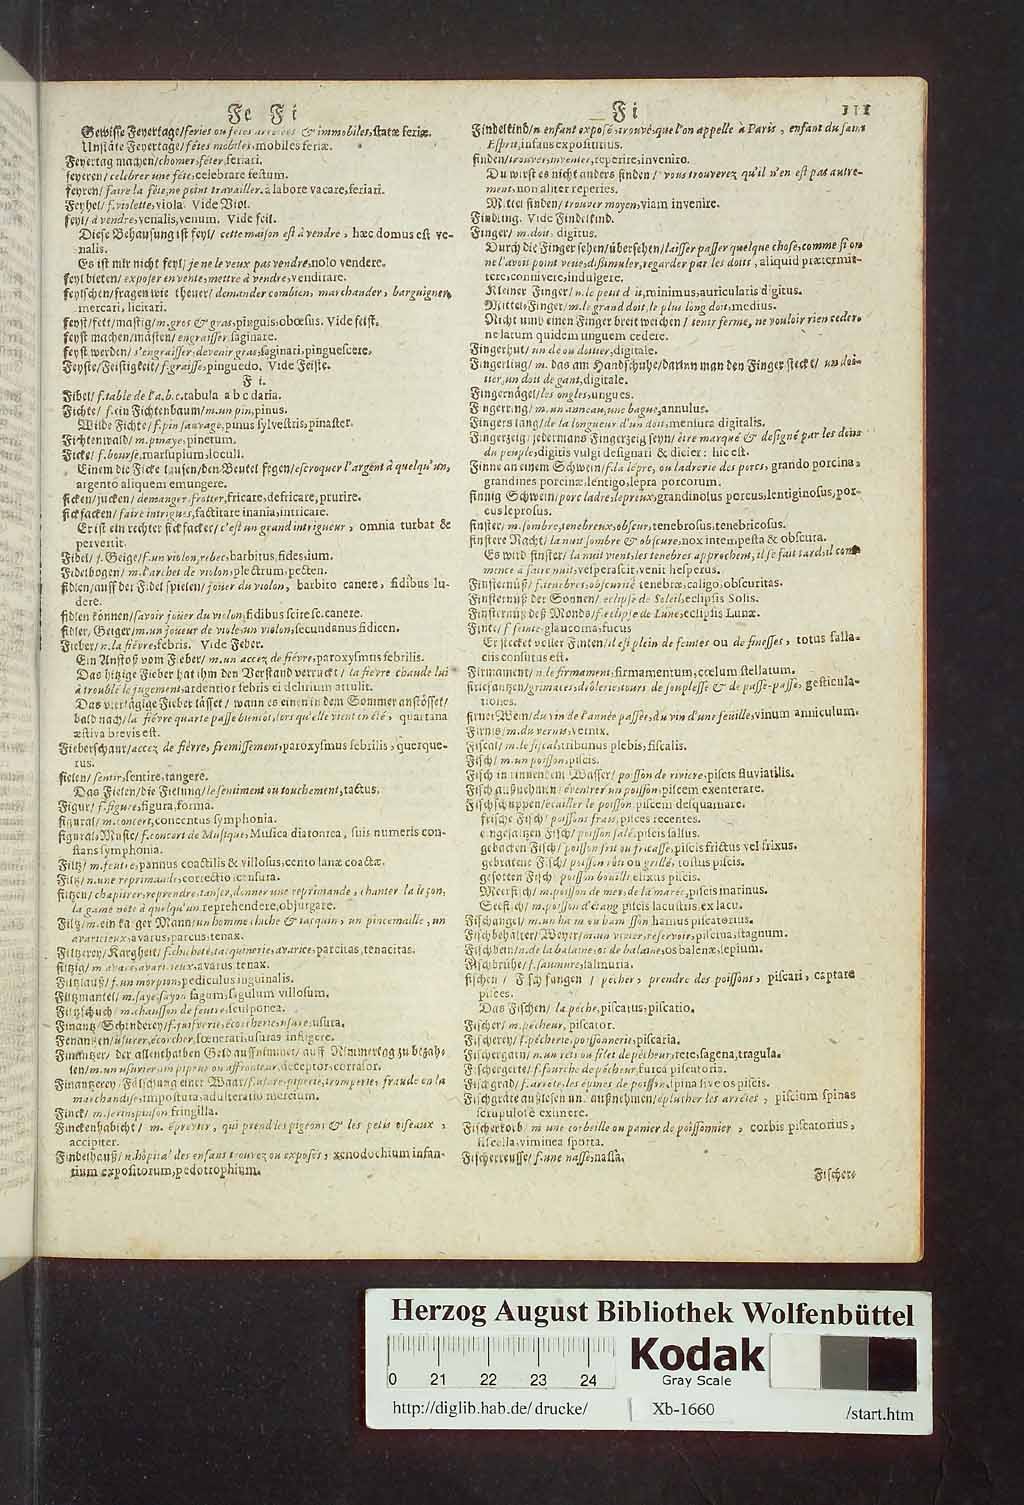 Fe Fi
Gewisse Feyertage/ feries ou fétes & immobiles, statæ feriæ.
Unstäte Feyertage/ fétes mobiles, mobiles feriæ.
Feyertag machen/ chomer, féter, feriari.
feyeren/ celebrer une féte, celebrare festum.
feyren/ faire la féte, ne point travailler, à labore vacare, feriari.
Feyhel/ f. violette, viola. Vide Viol.
feyl/ à vendre, venalis, venum. Vide feil.
Diese Behausung ist feyl/ cette maison est à vendre, hæc domus est ve-
nalis.
Es ist mir nicht feyl/ je ne le veux pas vendre, nolo vendere.
feyl bieten/ exposer en vente, mettre à vendre, venditare.
feylschen/ fragen wie theuer/ demander combien, marchander, barguigner,
mercari, licitari.
feyst/ fett/ mastig/ m. gros & gras, pinguis, obœsus. Vide feist.
feyst machen/ mästen/ engraisser, saginare.
feyst werden/ s'engraisser, devenir gras, saginari, pinguescere.
Feyste/ Feistigkeit/ f. graisse, pinguedo. Vide Feiste.
F i.
Fibel/ f. table de l'a.b.c. tabula a b c daria.
Fichte/ f. ein Fichtenbaum/ m. un pin, pinus.
Wilde Fichte/ f. pin sauvage, pinus sylvestris, pinaster.
Fichtenwald/ m. pinaye, pinetum.
Ficke/ f. bourse, marsupium, loculi.
Einem die Ficke lausen/ den Beutel fegen/ escroquer l'argent à quelqu'un,
argento aliquem emungere.
ficken/ jucken/ demanger, frotter, fricare, defricare, prurire.
fickfacken/ faire intrigues, factitare inania, intricare.
Er ist ein rechter fickfacker/ c'est un grand intrigueur, omnia turbat &
pervertit.
Fidel/ f. Geige/ f. un violon, rebec, barbitus, fides, ium.
Fidelbogen/ m. l'archet de violon, plectrum, pecten.
fidlen/ auff der Fidel spielen/ joüer du violon, barbito canere, fidibus lu-
dere.
fidlen können/ savoir joüer du violon, fidibus scire sc. canere.
fidler, Geiger/ m. un joueur de viole, un violon, secundanus fidicen.
Fieber/ n. la fiévre, febris. Vide Feber.
Ein Anstoß vom Fieber/ m. un accez de fiévre, paroxysmus febrilis.
Das hitzige Fieber hat ihm den Verstand verruckt/ la fiévre chaude lui
a troublé le jugement, ardentior febris ei delirium attulit.
Das viertägige Fieber lässet/ wann es einen in dem Sommer anstösset/
bald nach/ la fiévre quarte passe bientôt, lors qu'elle vient en été, quartana
æstiva brevis est.
Fieberschaur/ accez de fiévre, fremissement, paroxysmus febrilis, querque-
rus.
fielen/ sentir, sentire, tangere.
Das Fielen/ die Fielung/ le sentiment ou touchement, tactus.
Figur/ f. figure, figura, forma.
figural/ m. concert, concentus symphonia.
figural-Music/ f. concert de Musique, Musica diatonica, suis numeris con-
stans symphonia.
Filtz/ m. feutre, pannus coactilis & villosus, cento lanæ coactæ.
Filtz/ n. une reprimande, correctio, censura.
filtzen/ chapitrer, reprendre, tanser, donner une reprimande, chanter la leçon,
la game note à quelqu'un, reprehendere, objurgare.
Filtz/ m. ein karger Mann/ un homme chiche & tacquin, un pincemaille, un
avaricieux, avarus, parcus, tenax.
Filtzerey/ Kargheit/ f. chicheté, taquinerie, avarice, parcitas, tenacitas.
filtzig/ m. avare, avaricieux, avarus tenax.
Filtzlauß/ f. un morpion, pediculus inguinalis.
Filtzmantel/ m. saye, sayon sagum, sagulum villosum.
Filtzschuch/ m. chausson de feutre, sculponea.
Finantz/ Schinderey/ f. juifverie, écorcherie, usure, usura.
Fenantzen/ usurer, écorcher, fœnerari, usuras infligere.
Finantzer/ der allenthalben Geld auffnimmet/ auff Nimmertag zu bezah-
len/ m. un usurier, un pipeur ou affronteur, deceptor, corrasor.
Finantzerey, Fälschung einer Waar/ f. usure, piperie, tromperie, fraude en la
marchandise, impostura, adulteratio mercium.
Finck/ m. serin, pinson fringilla.
Finckenhabicht/ m. épervier, qui prend les pigeons & les petis oiseaux,
accipiter.
Findelhauß/ n. hôpital des enfans trouvez ou exposés, xenodochium infan-
tium expositorum, pedotrophium.
Fi 311
Findelkind/ n. enfant exposé, trouvé, que l'on appelle à Paris, enfant du saint
Esprit, infans expositius.
finden/ trouver, inventer, reperire, invenire.
Du wirst es nicht anders finden/ vous trouverez qu'il n'en est pas autre-
ment, non aliter reperies.
Mittel finden/ trouver moyen, viam invenire.
Findling. Vide Findelkind.
Finger/ m. doit, digitus.
Durch die Finger sehen/ übersehen/ laisser passer quelque chose, comme si on
ne l'avoit point veue, dissimuler, regarder par les doits, aliquid prætermit-
tere, connivere, indulgere.
Kleiner Finger/ n. le petit doit, minimus, auricularis digitus.
Mittel-Finger/ m. le grand doit, le plus long doit, medius.
Nicht umb einen Finger breit weichen/ tenir ferme, ne vouloir rien ceder,
ne latum quidem unguem cedere.
Fingerhut/ un dé ou doitier, digitale.
Fingerling/ m. das am Handschuhe/ darinn man den Finger steckt/ un doi-
tier, un doit de gant, digitale.
Fingernägel/ les ongles, ungues.
Fingerring/ m. un anneau, une bague, annulus.
Fingers lang/ de la longueur d'un doit, mensura digitalis.
Fingerzeig/ jedermans Fingerzeig seyn/ étre marqué & designé par les doits
du peuple, digitis vulgi designari & dicier: hic est.
Finne an einem Schwein/ f. la lépre, ou ladrerie des porcs, grando porcina,
grandines porcinæ, lentigo, lepra porcorum.
finnig Schwein/ porc ladre, lepreux, grandinosus porcus, lentiginosus, por-
cus leprosus.
finster/ m. sombre, tenebreux, obscur, tenebrosus, tenebricosus.
finstere Nacht/ la nuit sombre & obscure, nox intempesta & obscura.
Es wird finster/ la nuit vient, les tenebres approchent, il se fait tard, il com-
mence à faire nuit, vesperascit, venit hesperus.
Finsternüß/ f. tenebres, obscurité tenebræ, caligo, obscuritas.
Finsternüß der Sonnen/ eclipse de Soleil, eclipsis Solis.
Finsternüß deß Monds/ f. eclipse de Lune, eclipsis Lunæ.
Finte/ f. feinte, glaucoma, fucus
Er stecket voller Finten/ il est plein de feintes ou de finesses, totus falla-
ciis consutus est.
Firmament/ n. le firmament, firmamentum, cœlum stellatum.
firlefantzen/ grimaces, drôleries, tours de souplesse & de passe-passe, gesticula-
tiones.
firner Wein/ du vin de l'année passée, du vin d'une feuille, vinum anniculum.
Firnis/ m. du vernis, vernix.
Fiscal/ m. le fiscal, tribunus plebis, fiscalis.
Fisch/ m. un poisson, piscis.
Fisch in rinnendem Wasser/ poisson de riviere, piscis fluviatilis.
Fisch außnehmen/ éventrer un poisson, piscem exenterare.
Fischschuppen/ écailler le poisson, piscem desquamare.
frische Fisch/ poissons frais, pisces recentes.
eingesaltzen Fisch/ poisson salé, piscis salsus.
gebacken Fisch/ poisson frit ou fricassé, piscis frictus vel frixus.
gebratene Fisch/ poisson rôti ou grillé, tostus piscis.
gesotten Fisch/ poisson boulli, elixus piscis.
Meerfisch/ m. poisson de mer, de la marée, piscis marinus.
Seefisch/ m. poisson d'étang piscis lacustris, ex lacu.
Fischangel/ m. un haim ou hameçon hamus piscatorius.
Fischbehälter/ Weyer/ m. un vivier, reservoir, piscina, stagnum.
Fischbein/ n. de la balaine, os de balaine, os balenæ, sepium.
Fischbrühe/ f. saumure, salmuria.
fischen/ Fisch fangen/ pécher, prendre des poissons, piscari, captare
pisces.
Das Fischen/ la péche, piscatus, piscatio.
Fischer/ m. pécheur, piscator.
Fischerey/ f. pécherie, poissonnerie, piscaria.
Fischergarn/ n. un rets ou filet de pécheur, rete, sagena, tragula.
Fischergerte/ f. fourche de pécheur, furca piscatoria.
Fischgrad/ f. arréte, les épines de poisson, spina sive os piscis.
Fischgräte außlesen und außnehmen/ éplucher les arrétes, piscium spinas
scrupulosè eximere.
Fischerkorb/ m. une corbeille ou panier de poissonnier, corbis piscatorius,
fiscella, viminea sporta.
Fischerreusse/ f. une nasse, nassa.
Fischers
Herzog August Bibliothek Wolfenbüttel
Kodak
Gray Scale
0 21 22 23 24
http://diglib.hab.de/drucke/ Xb-1660 /start.htm